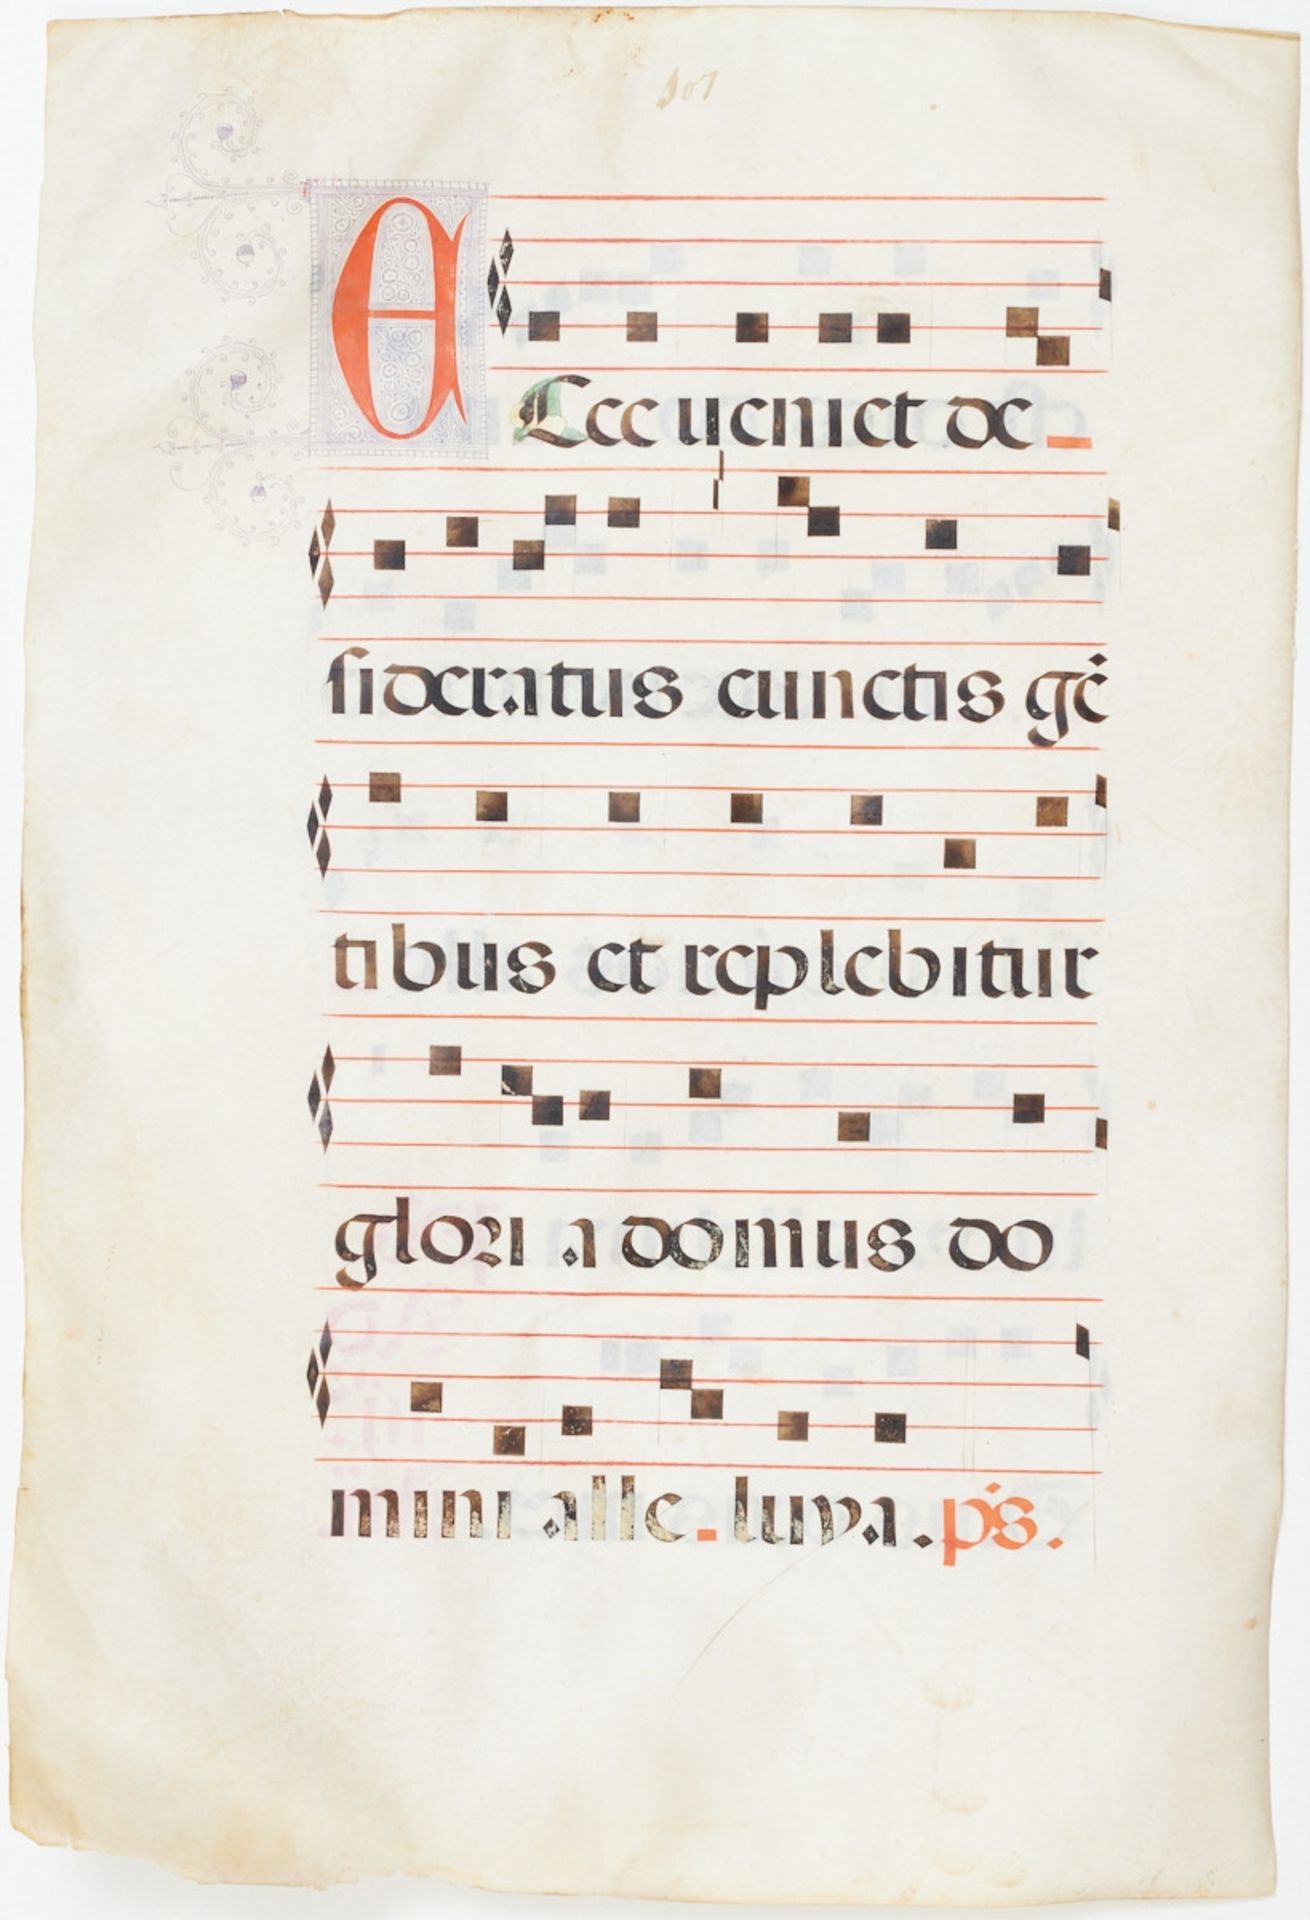 107
Ecce ueniet de-
sideratus cunctis gē
tibus et replebitur
glori a domus do
mini alle-luya. ps.